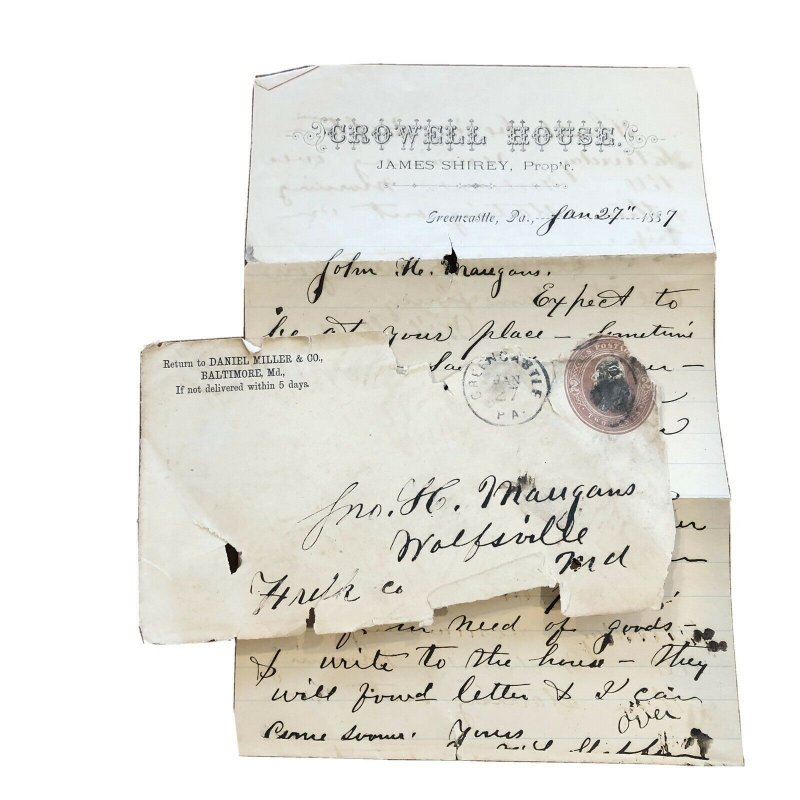 CROWELL HOUSE.
JAMES SHIREY, Prop'r.
Greencastle, Pa., Jan 27" 1887
John H. Maugans.
Expect to
be at your place – sometime
Return to DANIEL MILLER & CO.,
BALTIMORE, Md.,
If not delivered within 5 days.
GREENCASTLE
JAN
27
PA.
Jno. H. Maugans
Wolfsville
Md
Fred'k co
in need of goods –
& write to the house – they
will forwd letter & I can
over
come sooner. Yours